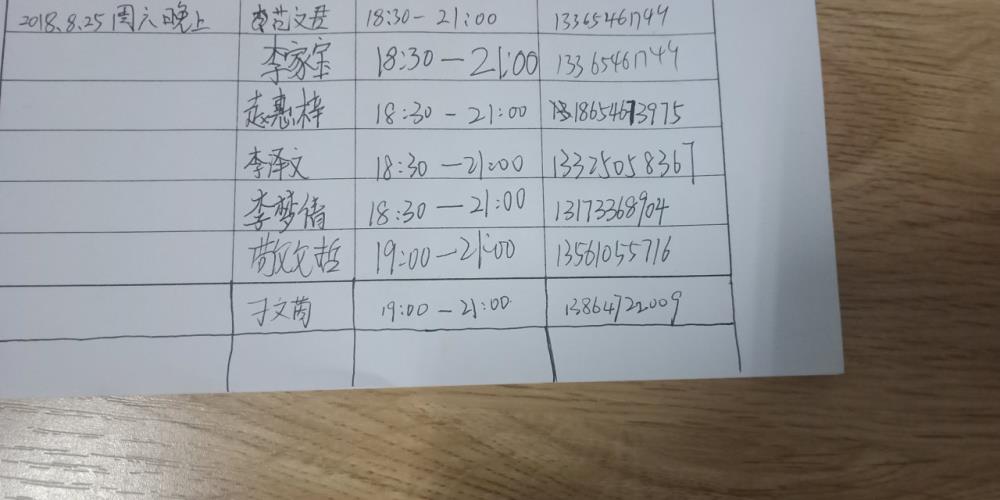 2018.8.25 周六晚上 范文君 18:30-21:00 13365461749
李家宝 18:30—21:00 13365461749
赵惠梓 18:30-21:00 18654673975
李泽文 18:30—21:00 13325058367
李梦倩 18:30—21:00 13173368904
19:00—21:00 13561055716
刁文茵 19:00—21:00 13864722009